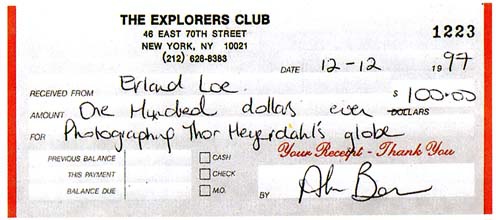 THE EXPLORERS CLUB
46 EAST 70TH STREET
NEW YORK, NY 10021
(212) 628-8383
1223
DATE 12-12 1997
RECEIVED FROM Erland Loe.
AMOUNT One Hundred dollars even $ 100.00 DOLLARS
FOR Photographing Thor Heyerdahl's globe
Your Receipt - Thank You
PREVIOUS BALANCE CASH
THIS PAYMENT CHECK
BALANCE DUE M.O.
BY